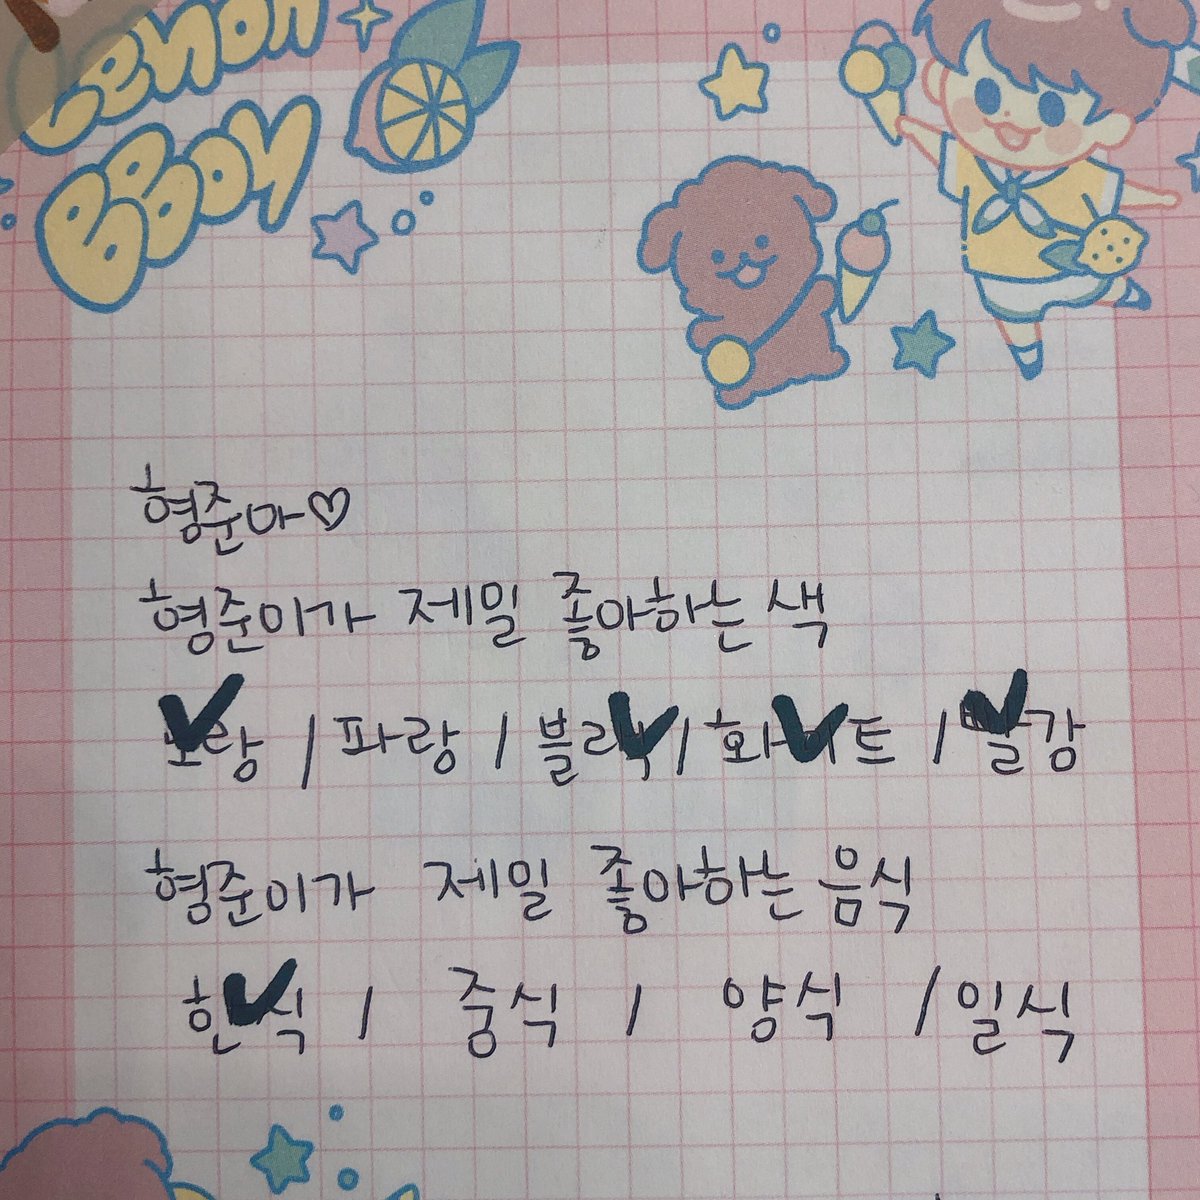 Lemon
BBoy
형준아♡
형준이가 제일 좋아하는 색
노랑 / 파랑 / 블랙 / 화이트 / 빨강
형준이가 제일 좋아하는 음식
한식 / 중식 / 양식 / 일식